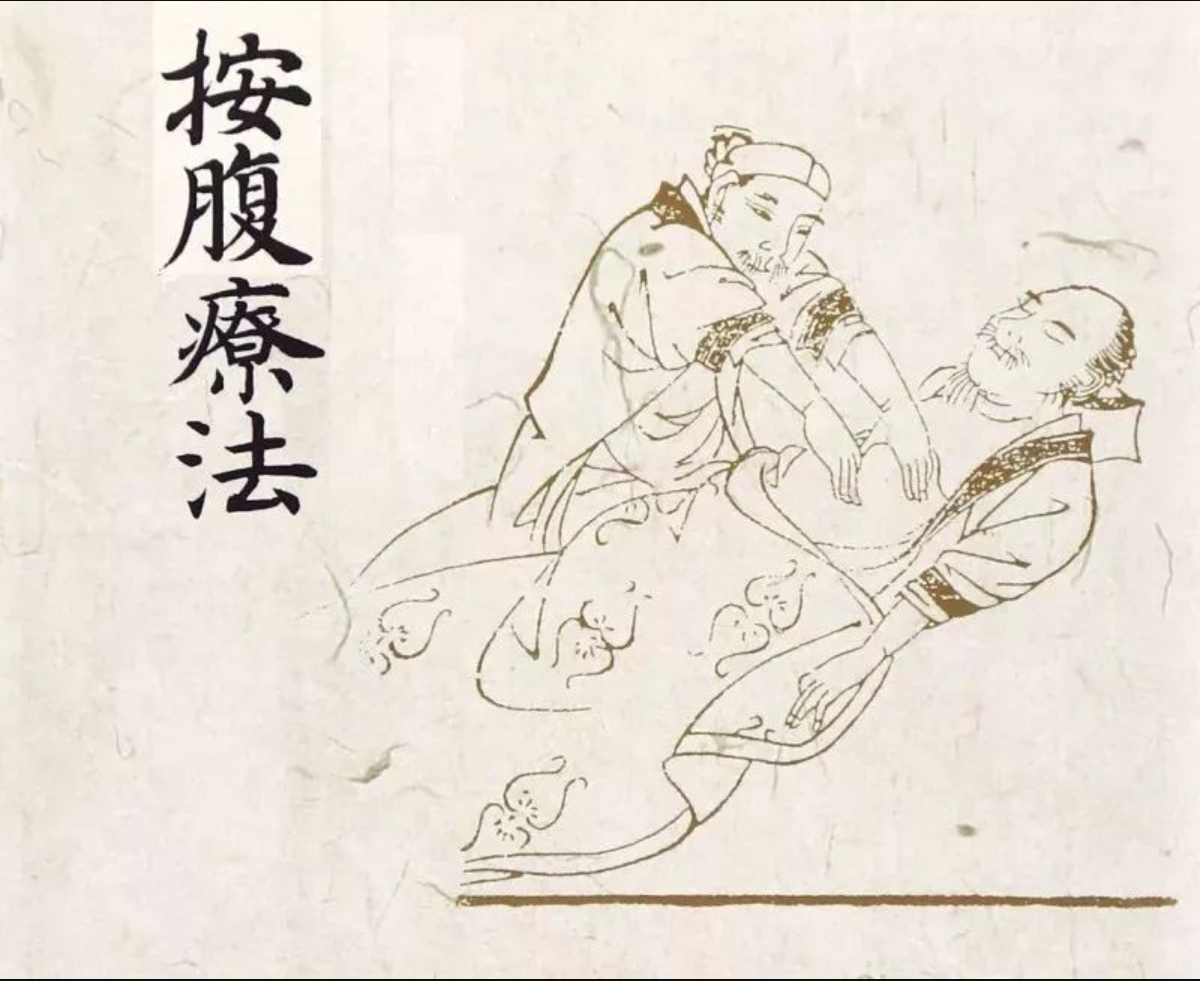 按腹療法